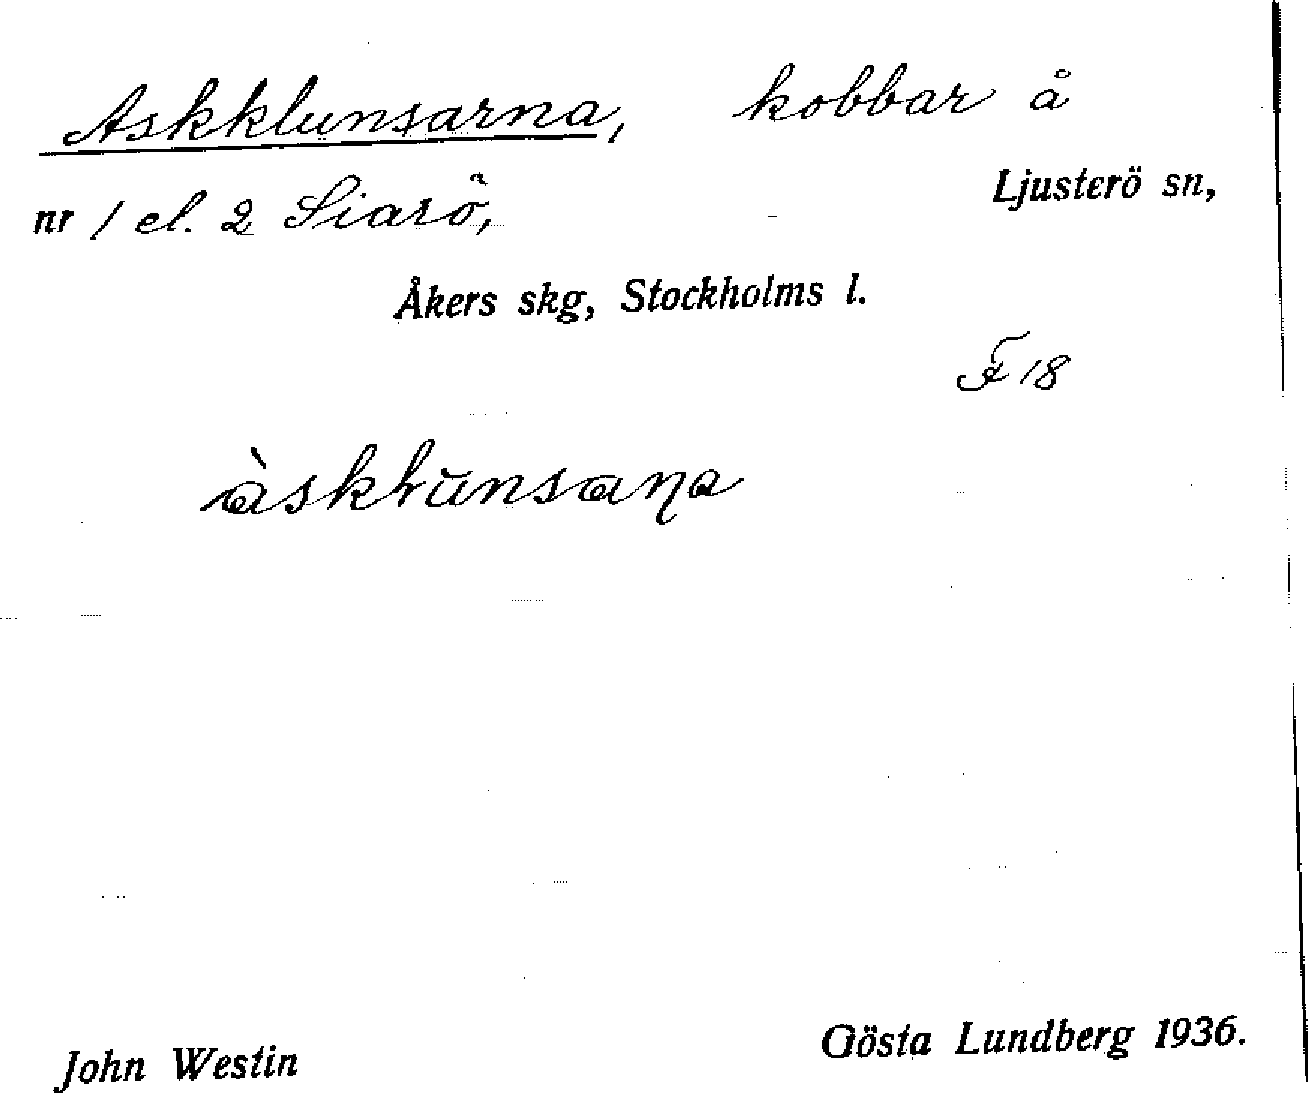 Askklunsarna, kobbar å
nr 1 el. 2 Siarö, Ljusterö sn,
Åkers skg, Stockholms l.
F 18
John Westin Gösta Lundberg 1936.